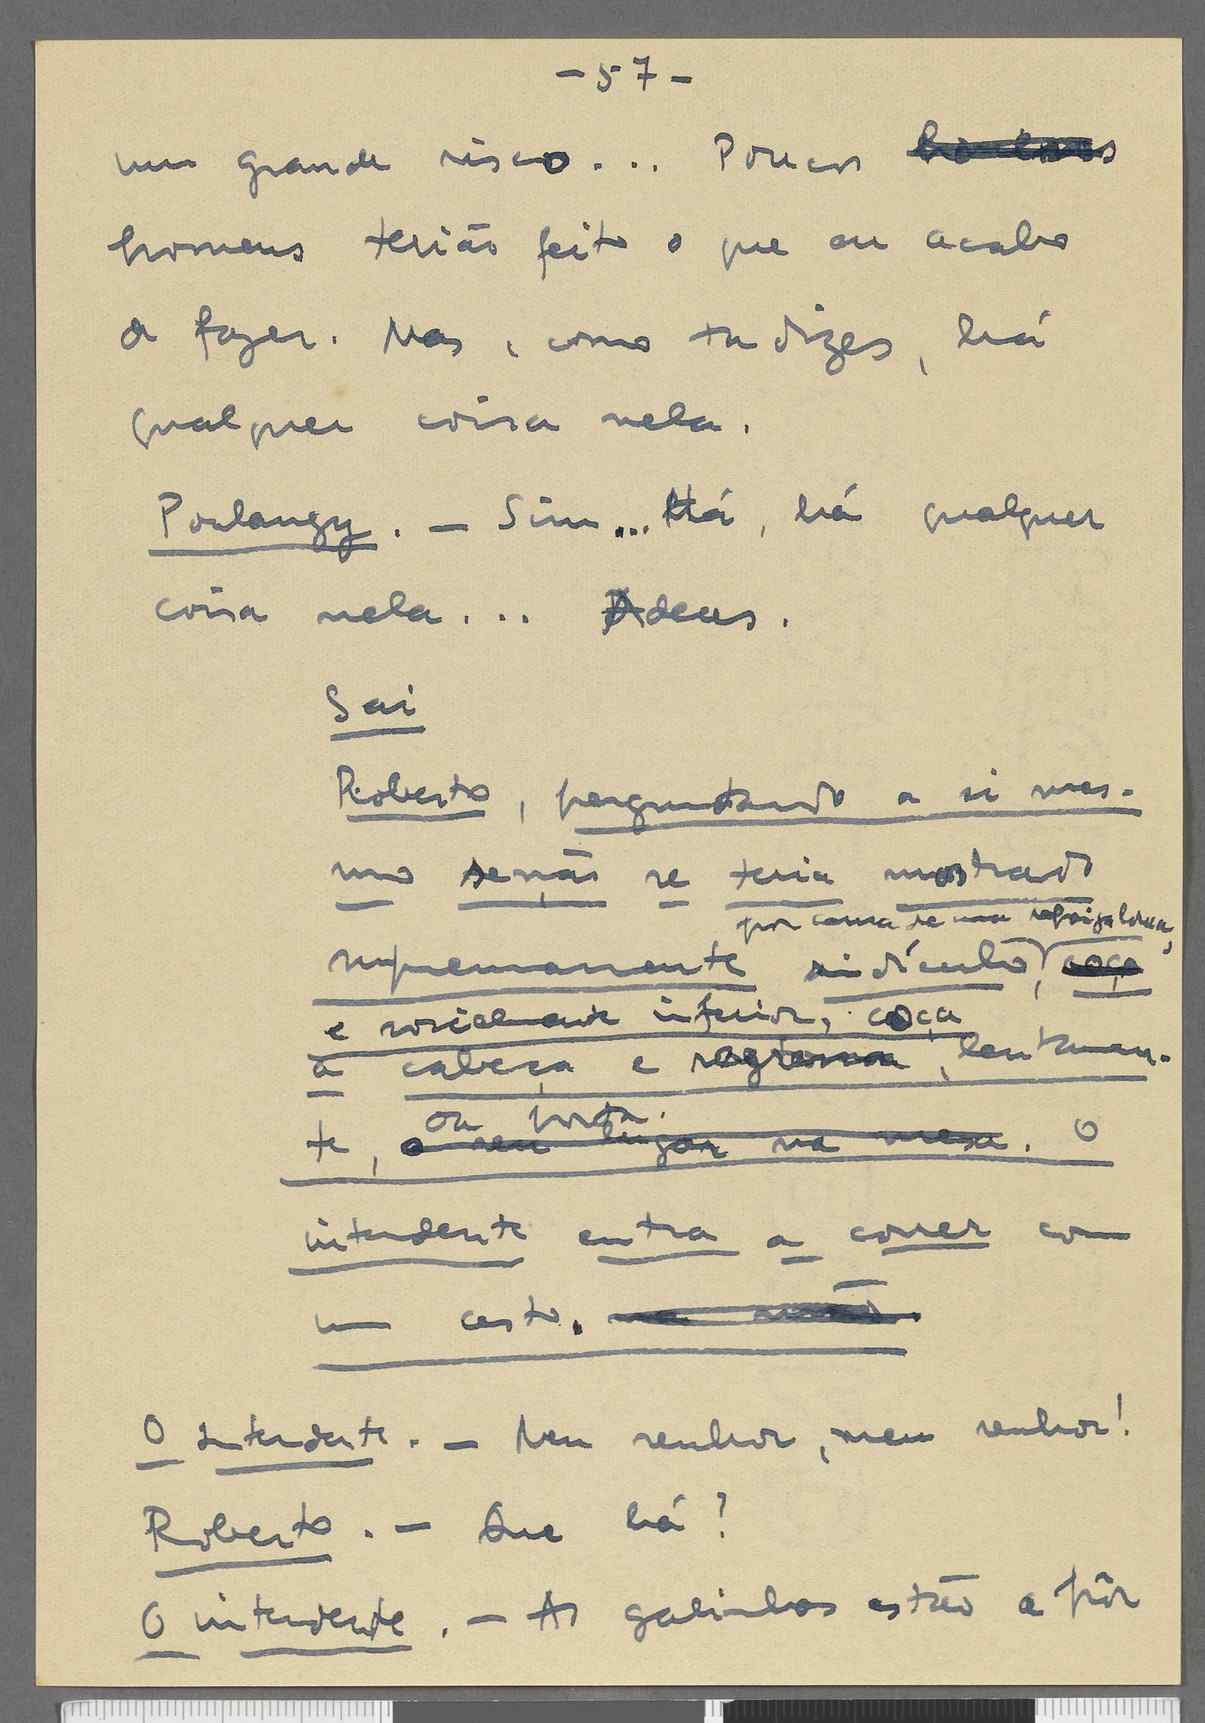 - 57 -
um grande risco... Poucos
homens terião feito o que eu acabo
de fazer. Mas, como tu dizes, há
qualquer coisa nela.
Poulangy. - Sim... Há, há qualquer
coisa nela... Adeus.
Sai
Roberto, perguntando a si mes-
mo senão se teria mostrado
por causa de uma
supremamente ridículo, coça
e socialmente inferior, coça
a cabeça e regressa, lentamen-
à porta.
te, o seu lugar na mesa. O
intendente entra a correr com
um cesto. na mão.
O intendente. - Meu senhor, meu senhor!
Roberto. - Que há?
O intendente. - As galinhas estão a pôr